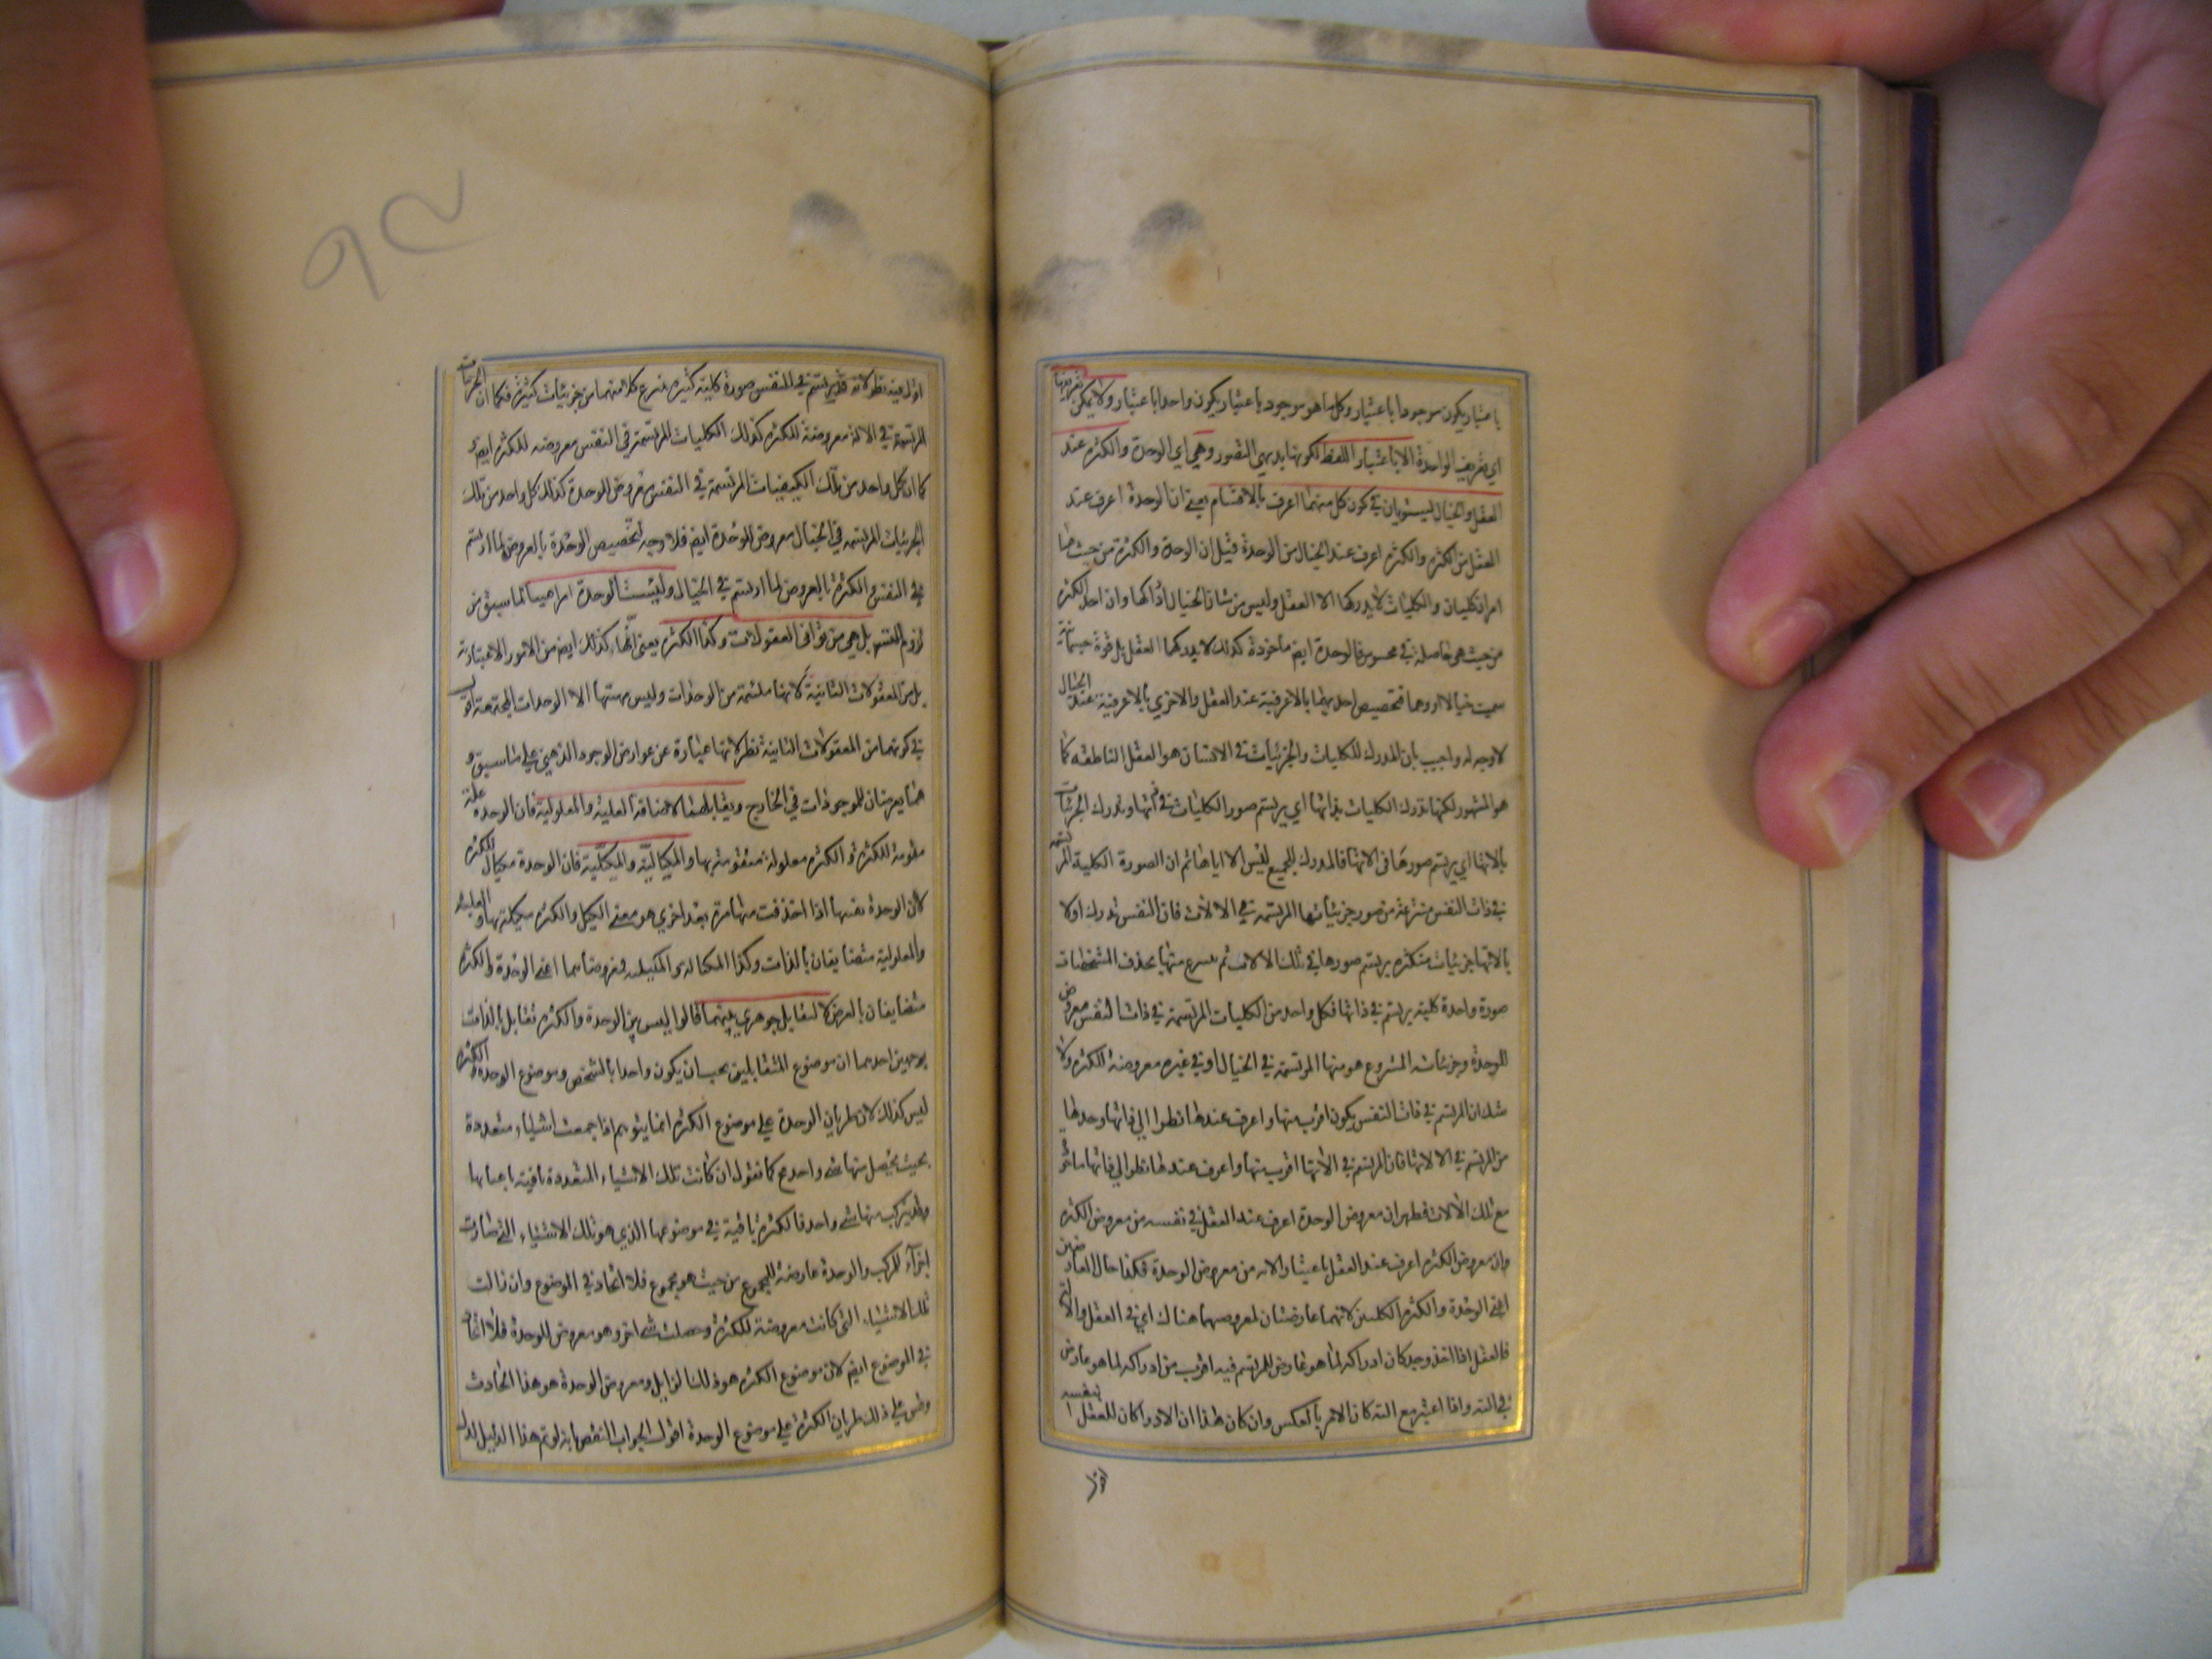 باعتبار يكون موجودا باعتبار وكل ما هو موجود باعتبار يكون واحدا باعتبار ولا يمكن تعريفها
اي تعريف الواحدة الا باعتبار اللفظ لكونها بديهي التصور وهي اي الوحدة والكثرة عند
العقل والخيال يستويان في كون كل منهما اعرف بالاقتسام يعني ان الوحدة اعرف عند
العقل من الكثرة والكثرة اعرف عند الخيال من الوحدة قيل ان الوحدة والكثرة من حيث هما
امران كليان والكليات لا يدركها الا العقل وليس من شان الخيال ادراكها وان احد الكثرة
من حيث هي حاصلة في محسوس فالوحدة ايضا ماخوذة كذلك لا يدركهما العقل بل قوة جسمانية
سميت خيالا او وهما فتخصيص احديهما بالاعرفية عند العقل والاخرى بالاعرفية عند الخيال
لا وجه له واجيب بان المدرك للكليات والجزئيات في الانسان هو العقل الناطقه كما
هو المشهور لكنها تدرك الكليات بذاتها اي يرتسم صور الكليات في ذاتها وتدرك الجزئيات
بالاتها اي يرتسم صورها في الاتها فالمدرك للجميع ليس الا اياها ثم ان الصورة الكلية المرتسمة
في ذات النفس منتزعة من صور جزئياتها المرتسمة في الالات فان النفس تدرك اولا
بالاتها جزئيات متكثره يرتسم صورها في تلك الالات ثم ينتزع منها بحذف المشخصات
صورة واحدة كلية يرتسم في ذاتها فكل واحد من الكليات المرتسمة في ذات النفس معروض
للوحدة وجزئياته المنتزع هو منها المرتسمة في الخيال او في غيره معروضة للكثرة ولا
شك ان المرتسم في ذات النفس يكون اقرب منها واعرف عندها نظرا الى ذاتها وحدها
من المرتسم في الاتها فان المرتسم في الاتها اقرب منها واعرف عندها نظرا الى ذاتها ماخوذة
مع تلك الالات فظهر ان معروض الوحدة اعرف عند العقل في نفسه من معروض الكثرة
وان معروض الكثرة اعرف عند العقل باعتبار الاته من معروض الوحدة فكذا حال العارضين
اعني الوحدة والكثرة الكليين لانهما عارضتان لمعروضهما هناك اي في العقل والالة
فالعقل اذا اخذ وحده كان ادراكه لما هو عارض للمرتسم فيه اقرب من ادراكه لما هو عارض
في الته واذا اعتبر مع الته كان الامر بالعكس وان كان هذا ان الادراكان للعقل بنفسه
اقول فيه نظر لانه قد يرتسم في النفس صورة كلية كثيرة ينتزع كلا منها من جزئيات كثيرة فكما ان الجزئيات
المرتسمة في الالة معروضة للكثرة كذلك الكليات المرتسمة في النفس معروضه للكثرة ايضا و
كما ان كل واحد من تلك الكيفيات المرتسمة في النفس معروض الوحدة كذلك كل واحد من تلك
الجزئيات المرتسمه في الخيال معروض للوحدة ايضا فلا وجه لتخصيص الوحدة بالعروض لما ارتسم
في النفس والكثرة بالعروض لما ارتسم في الخيال وليست الوحدة امرا عينيا لما سبق من
لزوم التسلسل بل هي من ثواني المعقولات وكذا الكثرة يعني انها كذلك ايضا من الامور الاعتبارية
بل من المعقولات الثانية لانها ملتئمة من الوحدات وليس مهيتها الا الوحدات المجتمعة
في كونهما من المعقولات الثانية نظر لانها عبارة عن عوارض الوجود الذهني على ما سبق و
هما يعرضان للموجودات في الخارج وتقابلهما لاضافة العلية والمعلولية فان الوحدة علة
مقومة للكثرة والكثرة معلولة متقومة بها والمكيالية والمكيلية فان الوحدة مكيال للكثرة
لان الوحدة تفنيها اذا حذفت منها مرة بعد اخرى هو معنى الكيل والكثرة مكيلة بها والعلية
والمعلولية متضايفان بالذات وكذا المكيالية والمكيلية ومعروضاهما اعني الوحدة والكثرة
متضايفان بالعرض لا لتقابل جوهري بينهما قالوا ليس بين الوحدة والكثرة تقابل بالذات
بوجهين احدهما ان موضوع المتقابلين يجب ان يكون واحدا بالشخص وموضوع الوحدة والكثرة
ليس كذلك لان طريان الوحدة على موضوع الكثرة انما يتوهم اذا جمعت اشياء متعددة
بحيث يحصل منها شئ واحد فح كما نقول ان كانت تلك الاشياء المتعددة باقية باعيانها
وقد تركب منها شئ واحد فالكثرة باقية في موضوعها الذي هو تلك الاشياء التي صارت
اجزآء للمركب والوحدة عارضة للمجموع من حيث هو مجموع فلا اتحاد في الموضوع وان زالت
تلك الاشياء التي كانت معروضة للكثرة وحصلت شئ اخر وهو معروض للوحدة فلا اتحاد
في الموضوع ايضا لان موضوع الكثرة هو ذلك الزايل ومعروض الوحدة هو هذا الحادث
وقس على ذلك طريان الكثرة على موضوع الوحدة اقول الجواب النقض بانه لو تم هذا الدليل لدل